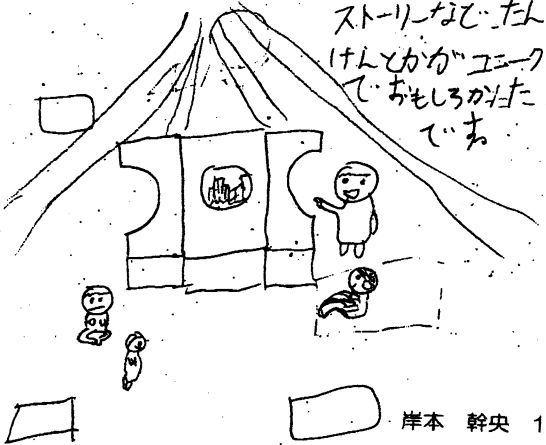 ストーリーなどったん
けんとかがユニーク
でおもしろかった
です
岸本 幹央 1